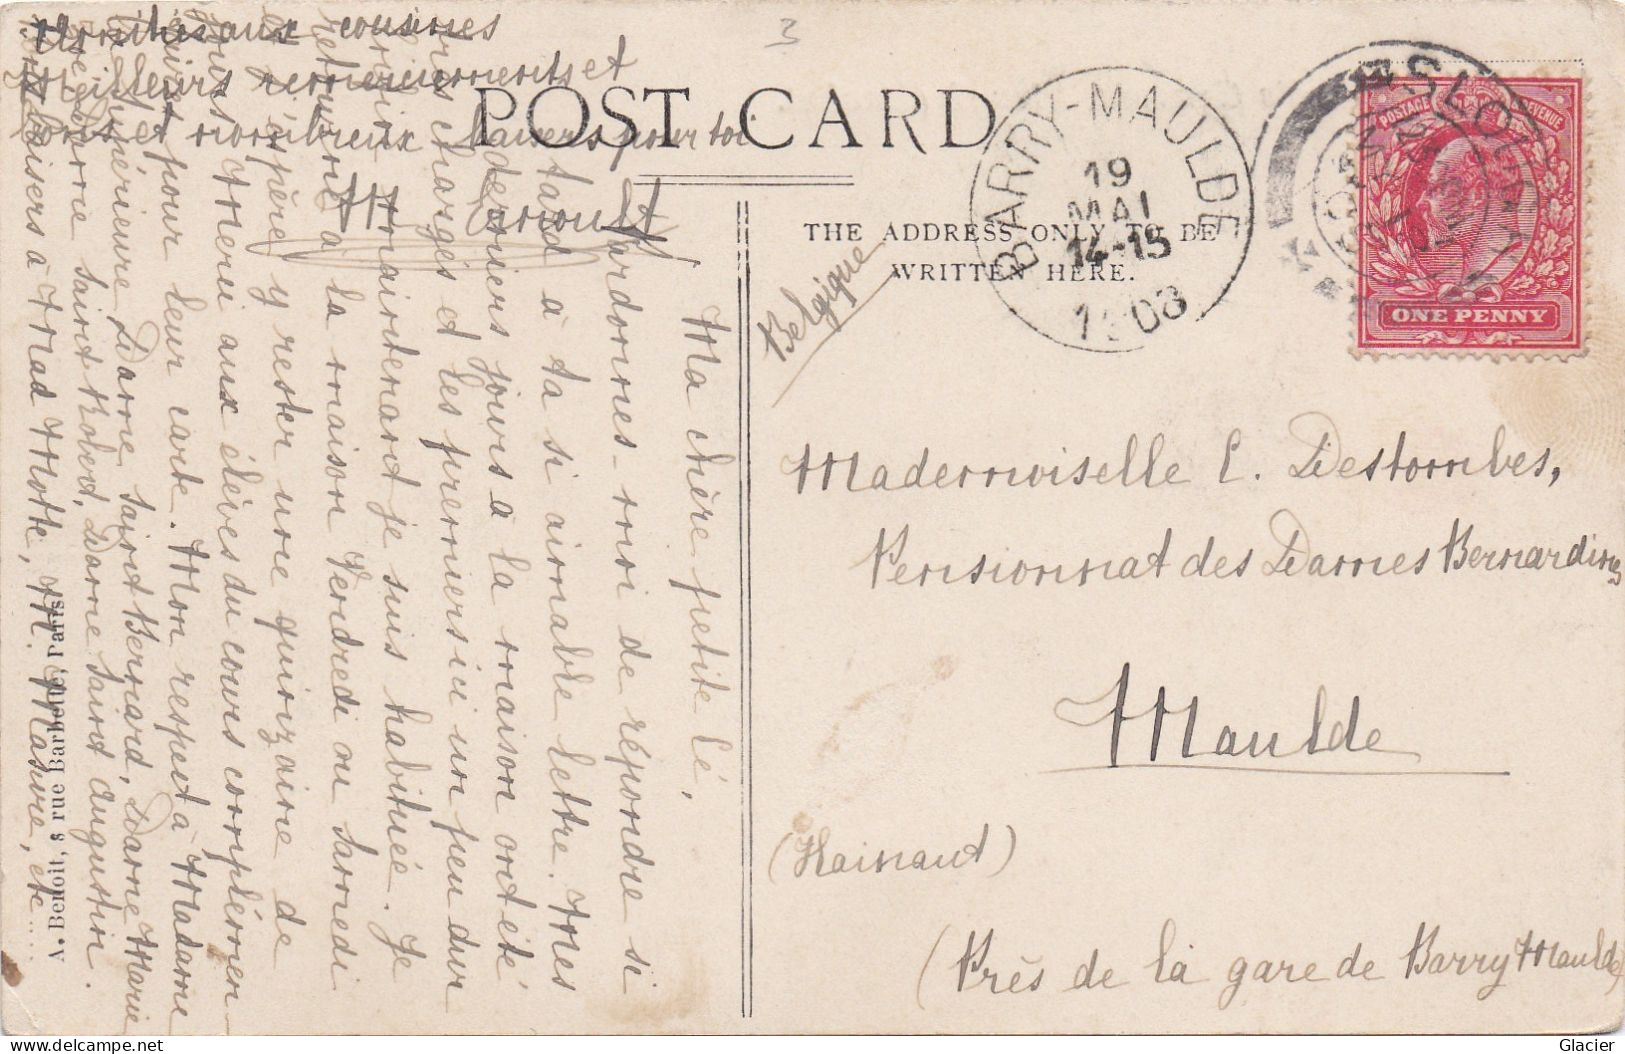 Amitiés aux cousines
Meilleurs remerciements et
bons et nombreux baisers pour toi
M. Arnoult
3
POST CARD
THE ADDRESS ONLY TO BE
WRITTEN HERE.
BARRY-MAULDE
19
MAI
14-15
1908
POSTAGE REVENUE
ONE PENNY
Belgique
Ma chère petite Lé,
Pardonnes-moi de répondre si
tard à ta si aimable lettre. Mes
derniers jours à la maison ont été
très chargés et les premiers ici un peu durs
maintenant je suis habituée. Je
retournerai à la maison Vendredi ou Samedi
et j'espère y rester une quinzaine de
jours. Merci aux élèves du cours complémen
taires pour leur carte. Mon respect à Madame
la Supérieure, Dame Saint Bernard, Dame Marie
Dame Saint Robert, Dame Saint Augustin.
baisers à Mad Motte, M. Masure, etc....
A. Benoit, 8 rue Barbette, Paris
Mademoiselle C. Destombes,
Pensionnat des Dames Bernardines
Maulde
(Hainaut)
(Près de la gare de Barry Maulde)
Glacier
delcampe.net